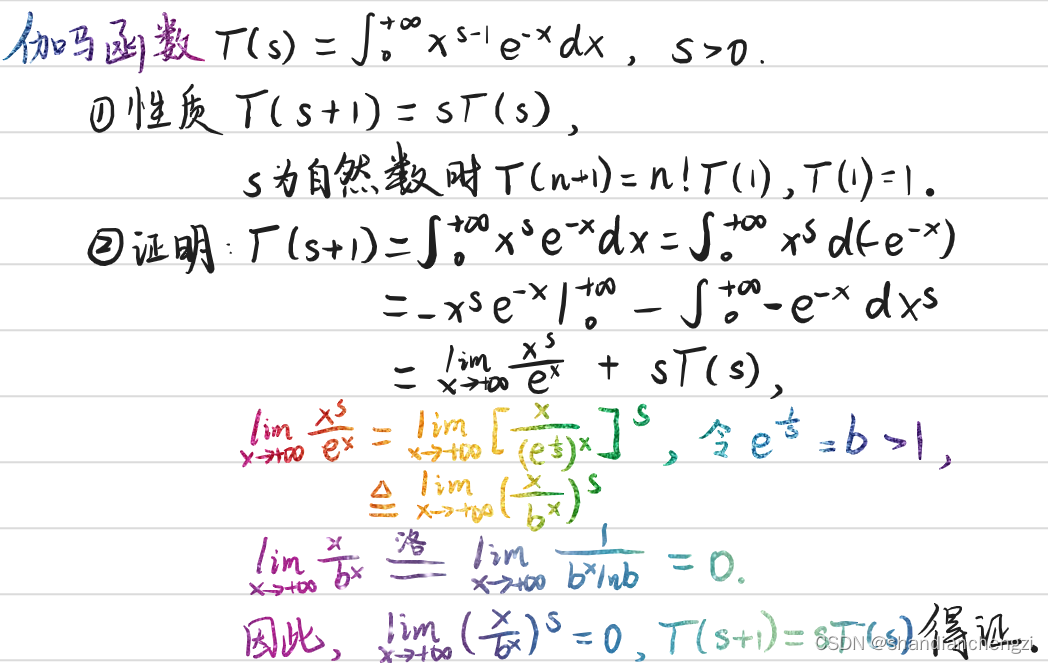 伽马函数 Γ(s) = ∫₀^{+∞} x^{s-1} e^{-x} dx , s>0.
① 性质 Γ(s+1) = sΓ(s) ,
s为自然数时 Γ(n+1) = n!Γ(1) , Γ(1)=1.
② 证明: Γ(s+1) = ∫₀^{+∞} x^s e^{-x} dx = ∫₀^{+∞} x^s d(-e^{-x})
= -x^s e^{-x} |₀^{+∞} - ∫₀^{+∞} -e^{-x} dx^s
= lim_{x→+∞} x^s/e^x + sΓ(s) ,
lim_{x→+∞} x^s/e^x = lim_{x→+∞} [x/(e^{1/s})^x]^s , 令 e^{1/s} = b >1 ,
≜ lim_{x→+∞} (x/b^x)^s
lim_{x→+∞} x/b^x 洛= lim_{x→+∞} 1/(b^x lnb) = 0.
因此, lim_{x→+∞} (x/b^x)^s = 0 , Γ(s+1)=sΓ(s) 得证.
CSDN @shandianchengzi